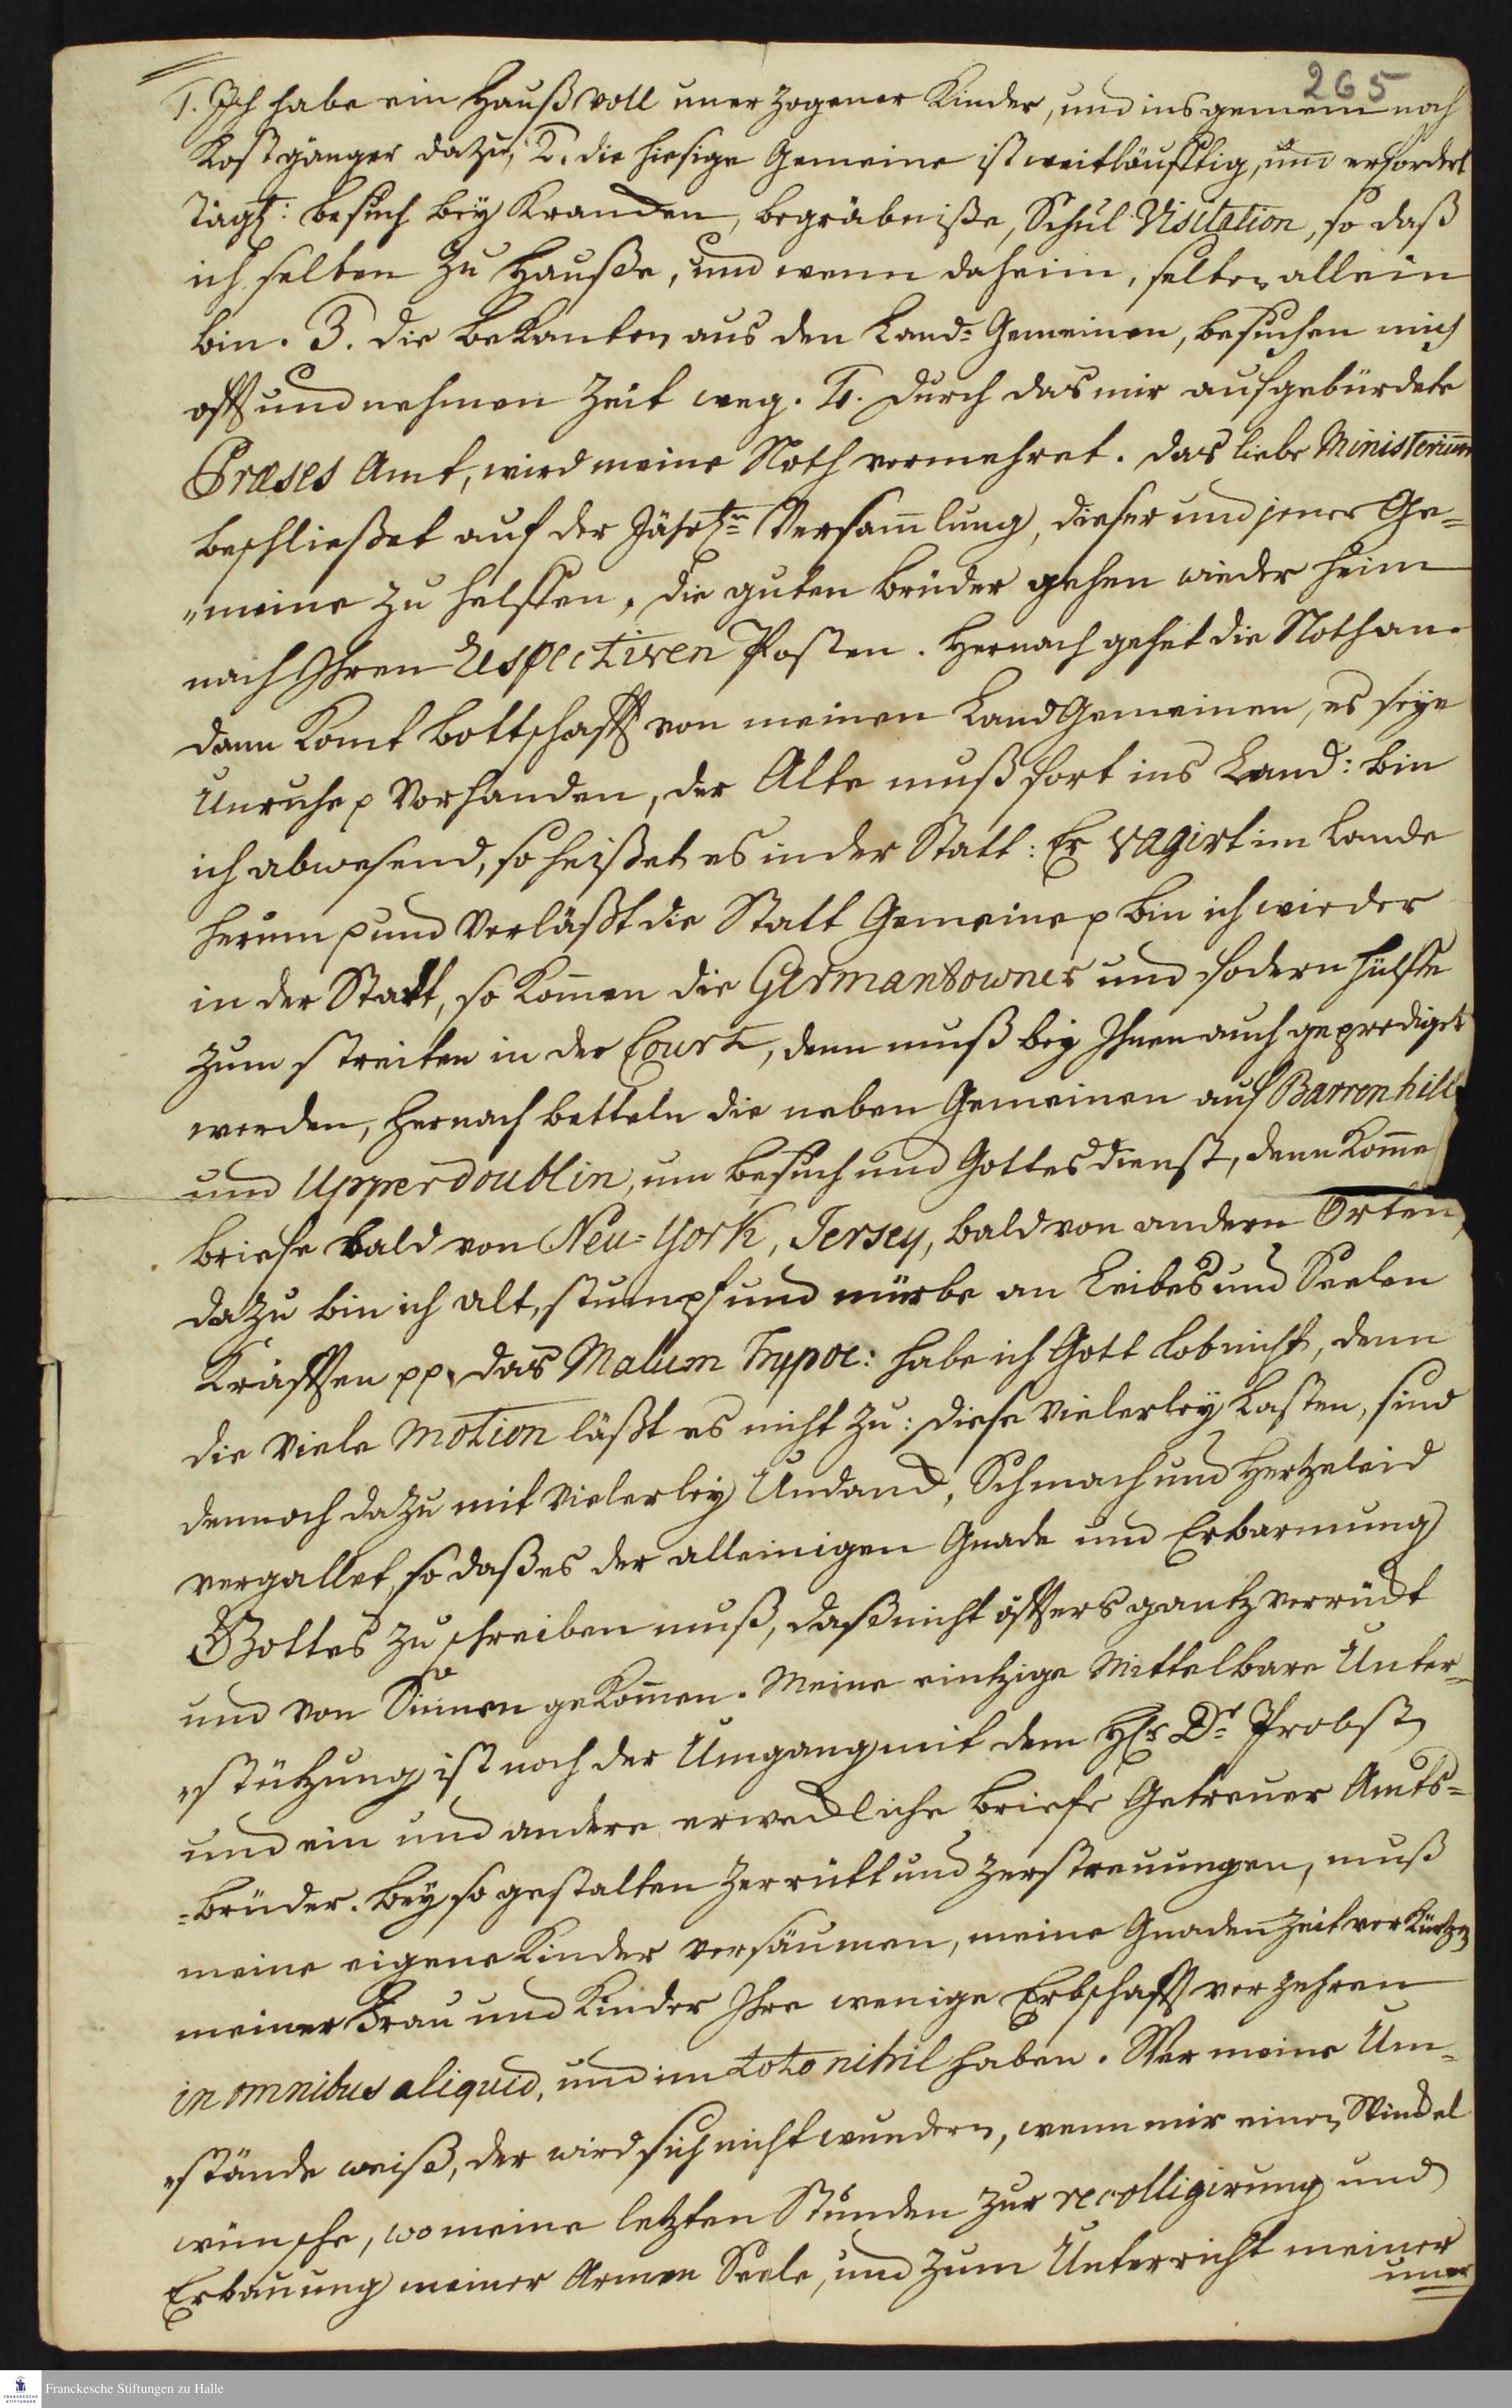 265
1. Ich habe ein Hauß voll unerzogener Kinder, und insgemein noch
Kostgänger dazu; 2. die hiesige Gemeine ist weitläufftig, und erfordert
Tägl: besuch bey Krancken, begräbniße, Schul Visitation, so daß
ich selten zu Hauße, und wenn daheim, selten allein
bin. 3. die bekanten aus den Land-Gemeinen, besuchen mich
offt und nehmen Zeit weg. 4. durch das mir aufgebürdete
Præses Amt, wird meine Noth vermehret. das liebe Ministerium
beschließet auf der Jährln Versam̄lung, dieser und jener Ge=
"meine zu helffen, die guten brüder gehen wieder heim
nach Ihren respectiven Posten. Hernach gehet die Noth an.
dann komt bottschafft von meinen Land Gemeinen, es seye
Unruhe p vorhanden, der Alte muß fort ins Land: bin
ich abwesend, so heißet es in der Statt: Er vagirt im Lande
herum p und verläßt die Statt Gemeine p bin ich wieder
in der Statt, so kom̄en die Germantowner und fodern hülffe
zum streiten in der Court, denn muß bey Ihnen auch geprediget
werden, hernach betteln die neben Gemeinen auf Barrenhill
und Upperdoublin, um besuch und Gottesdienst, denn kom̄e
briefe bald von Neu-York, Jersey, bald von andern Orten,
dazu bin ich alt, stumpf und mürbe an Leibes und Seelen
Kräfften pp. das Malum hypoc: habe ich Gott Lob nicht, denn
die viele motion läßt es nicht zu: diese vielerley Lasten, sind
dennoch dazu mit vielerley Undanck, Schmach und Hertzeleid
vergallet, so daß es der alleinigen Gnade und Erbarmung
Gottes zu schreiben muß, daß nicht öffters gantz verrückt
und von Sinnen gekom̄en. Meine eintzige Mittelbare Unter=
"stützung ist noch der Umgang mit dem HEr Dr Probst,
und ein und andere erweckliche briefe Getreuer Amts=
=brüder. bey so gestalten Zerrütt und Zerstreuungen, muß
meine eigene Kinder versäumen, meine Gnadenzeit verkürtzen
meiner Frau und Kinder Ihre wenige Erbschafft verzehren
in omnibus aliquid, und im toto nihil haben. Wer meine Um=
"stände weiß, der wird sich nicht wundern, wenn mir einen Winckel
wünsche, wo meine letzten Stunden zur recolligirung und
Erbauung meiner Armen Seele, und zum Unterricht meiner
uner
Franckesche Stiftungen zu Halle